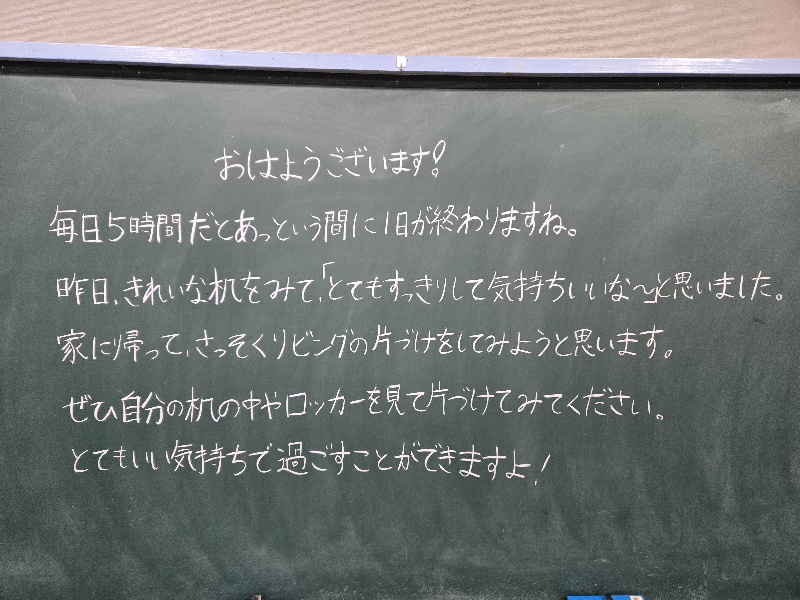 おはようございます!
毎日5時間だとあっという間に1日が終わりますね。
昨日、きれいな机をみて、「とてもすっきりして気持ちいいな〜」と思いました。
家に帰って、さっそくリビングの片づけをしてみようと思います。
ぜひ自分の机の中やロッカーを見て片づけてみてください。
とてもいい気持ちで過ごすことができますよ!